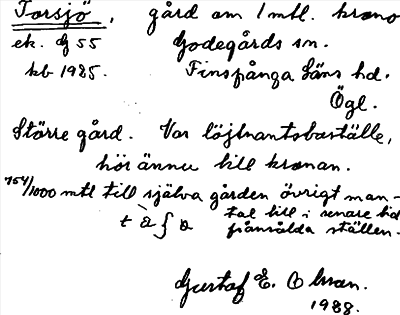 Torsjö, gård om 1 mtl. krono
ek. bl 55 Godegårds sn.
kb 1985. Finspånga läns hd.
Ögl.
Större gård. Var löjtnantsboställe,
hör ännu till kronan.
754/1000 mtl till själva gården övrigt man-
tal till i senare tid
frånsålda ställen.
Gustaf E.
1988.